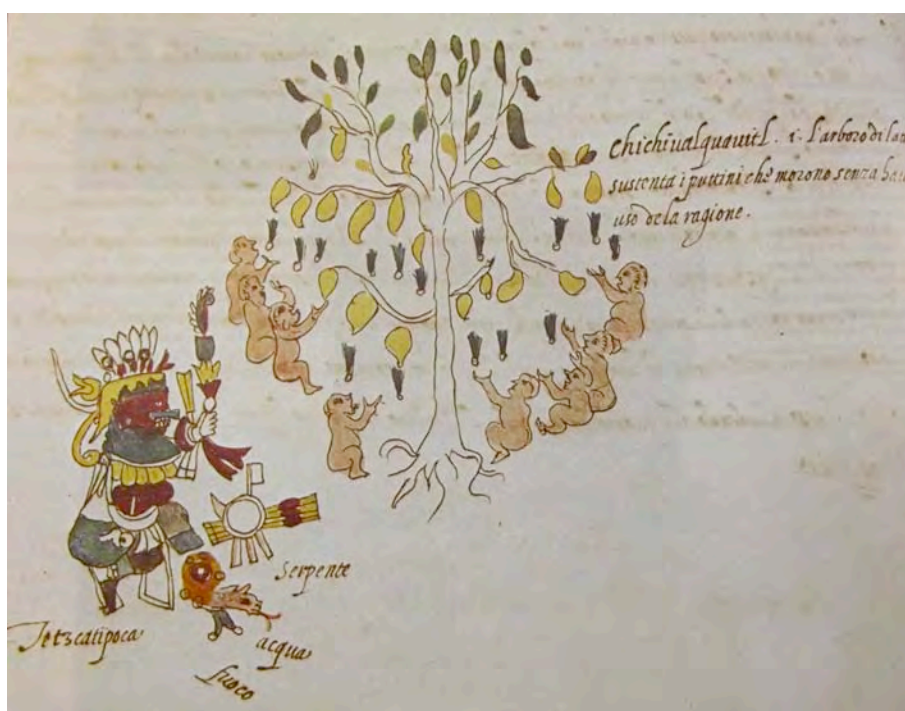 Chichiualquauitl. i. l'arboro di la
sustenta i puttini che morono senza hau
uso de la ragione.
serpente
Tetzcatipoca
acqua
fuoco